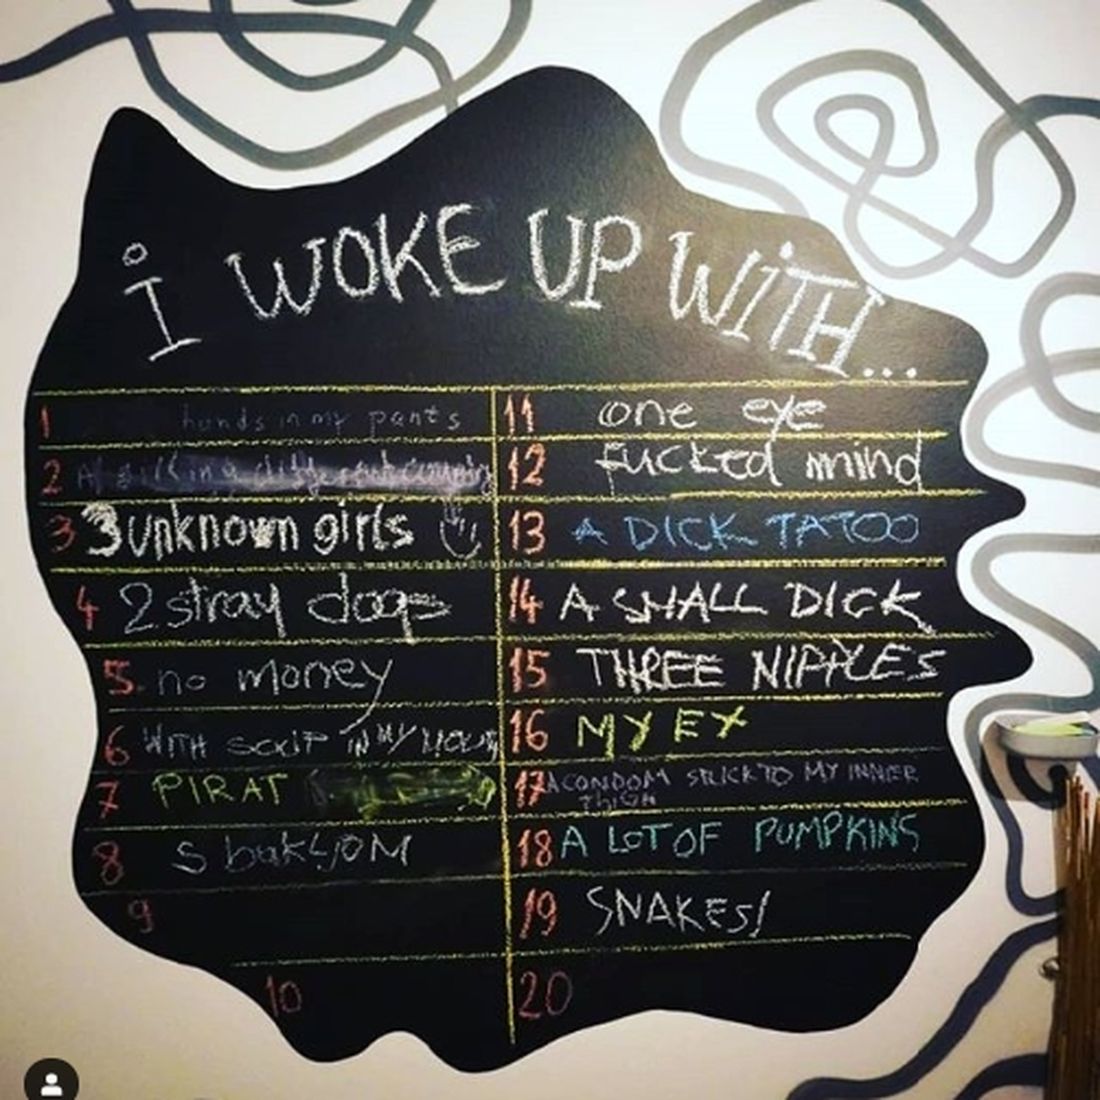 i WOKE UP WiTH...
1 hands in my pants
2
3 3 unknown girls
4 2 stray dogs
5. no money
6 WITH SCUIP IN MY MOUTH
7 PIRAT
8 S bakljOM
9
10
11 one eye
12 fucked mind
13 A DICK TATOO
14 A SMALL DICK
15 THREE NIPPLES
16 MY EX
17 A CONDOM STUCK TO MY INNER
THIGH
18 A LOT OF PUMPKINS
19 SNAKES!
20